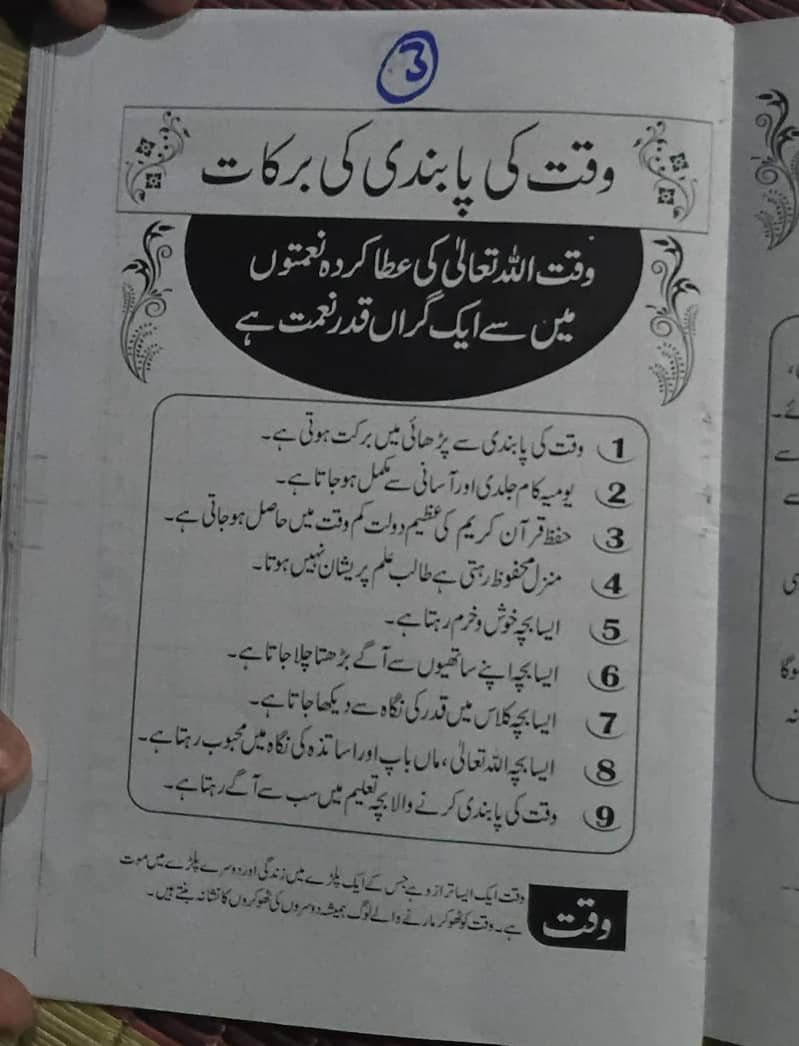 3
وقت کی پابندی کی برکات
وقت اللہ تعالیٰ کی عطا کردہ نعمتوں
میں سے ایک گراں قدر نعمت ہے
1 وقت کی پابندی سے پڑھائی میں برکت ہوتی ہے۔
2 یومیہ کام جلدی اور آسانی سے مکمل ہو جاتا ہے۔
3 حفظ قرآن کریم کی عظیم دولت کم وقت میں حاصل ہو جاتی ہے۔
4 منزل محفوظ رہتی ہے طالب علم پریشان نہیں ہوتا۔
5 ایسا بچہ خوش و خرم رہتا ہے۔
6 ایسا بچہ اپنے ساتھیوں سے آگے بڑھتا چلا جاتا ہے۔
7 ایسا بچہ کلاس میں قدر کی نگاہ سے دیکھا جاتا ہے۔
8 ایسا بچہ اللہ تعالیٰ، ماں باپ اور اساتذہ کی نگاہ میں محبوب رہتا ہے۔
9 وقت کی پابندی کرنے والا بچہ تعلیم میں سب سے آگے رہتا ہے۔
وقت
وقت ایک ایسا ترازو ہے جس کے ایک پلڑے میں زندگی اور دوسرے پلڑے میں موت
ہے۔ وقت کو ٹھوکر مارنے والے لوگ ہمیشہ دوسروں کی ٹھوکروں کا نشانہ بنتے ہیں۔